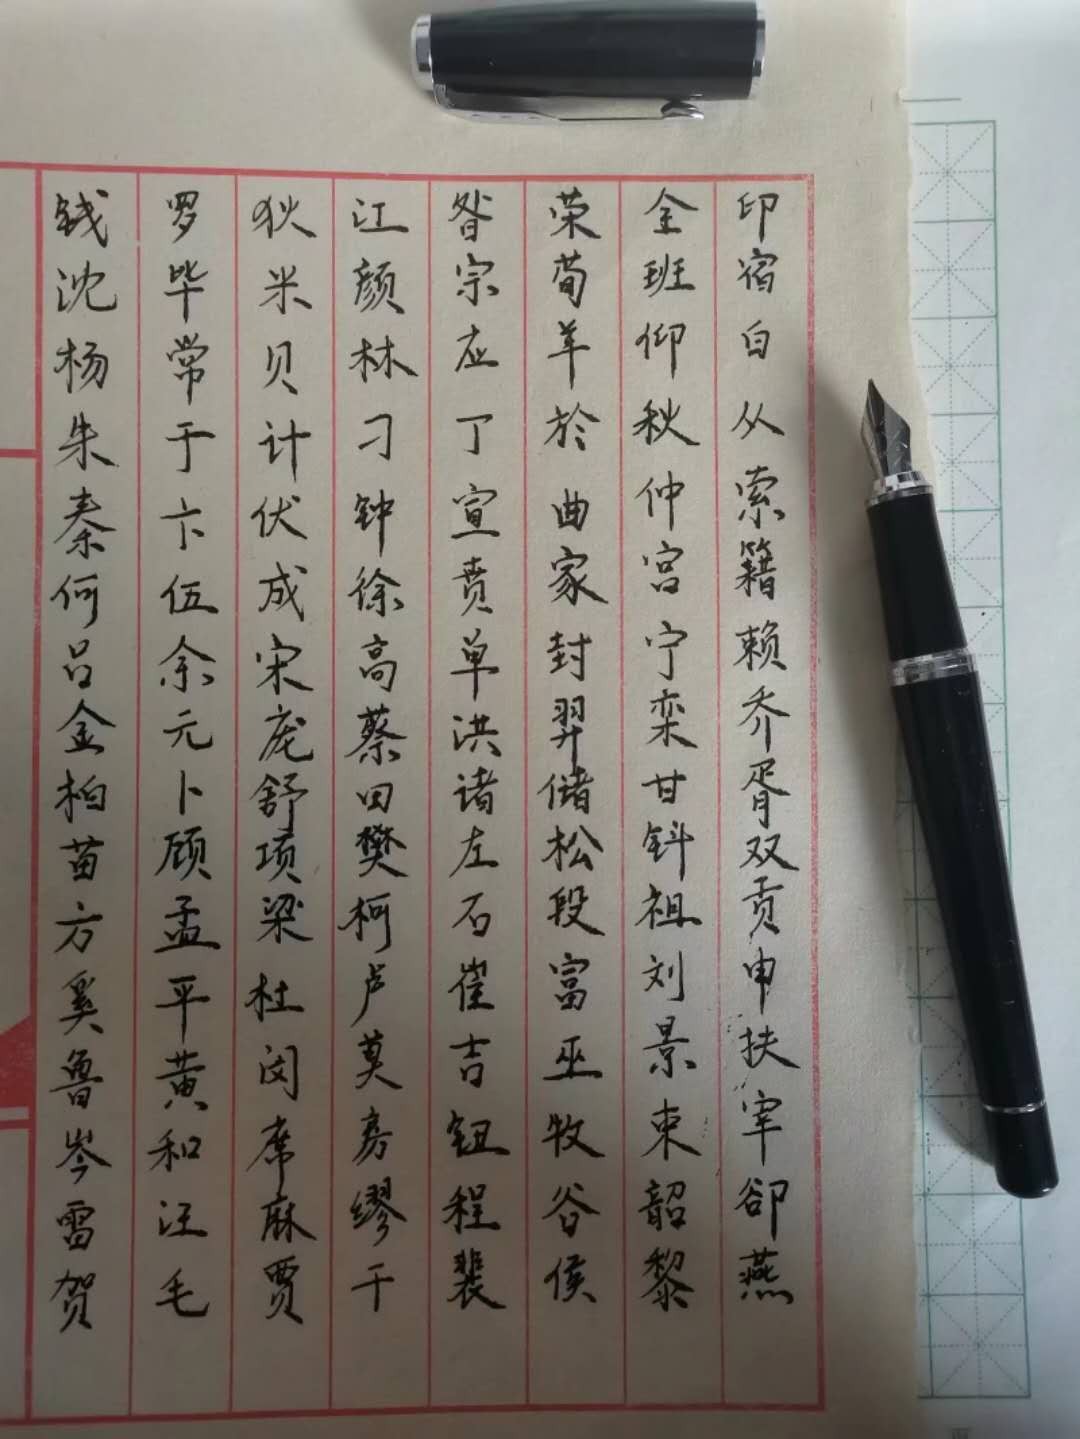 钱沈杨朱秦何吕金柏苗方奚鲁岑雷贺
罗毕常于卞伍余元卜顾孟平黄和汪毛
狄米贝计伏成宋庞舒项梁杜闵席麻贾
江颜林刁钟徐高蔡田樊柯卢莫房缪干
昝宗应丁宣贲单洪诸左石崔吉钮程裴
荣荀羊於曲家封羿储松段富巫牧谷侯
全班仰秋仲宫宁栾甘钭祖刘景束韶黎
印宿白从索籍赖乔胥双贡申扶宰郤燕